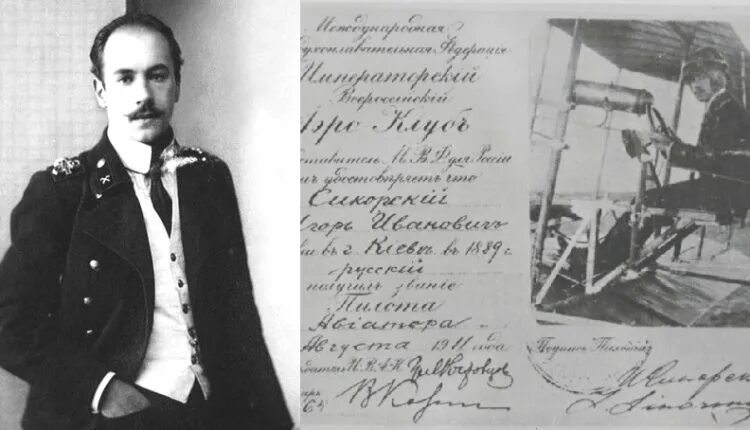 Международная
Воздухоплавательная Федерація
Императорскій
Всероссійскій
Аэро Клубъ
Представитель М. В. Ф. для Россіи
симъ удостовѣряетъ что
Сикорскій
Игорь Ивановичъ
въ г. Кіевѣ въ 1889 г.
русскій
получилъ званіе
Пилота
Авіатора
Августа 1911 года
И. В. А. К.
64
Подпись Пилота
И Сикорск
Sikorsky